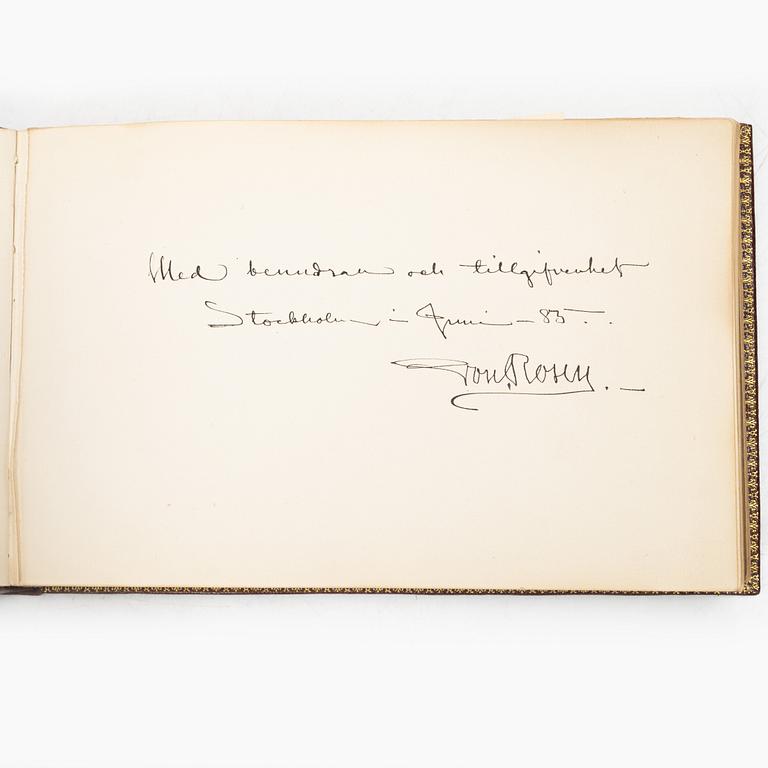 Med beundran och tillgifvenhet
Stockholm i Juni - 85.
von Rosen.